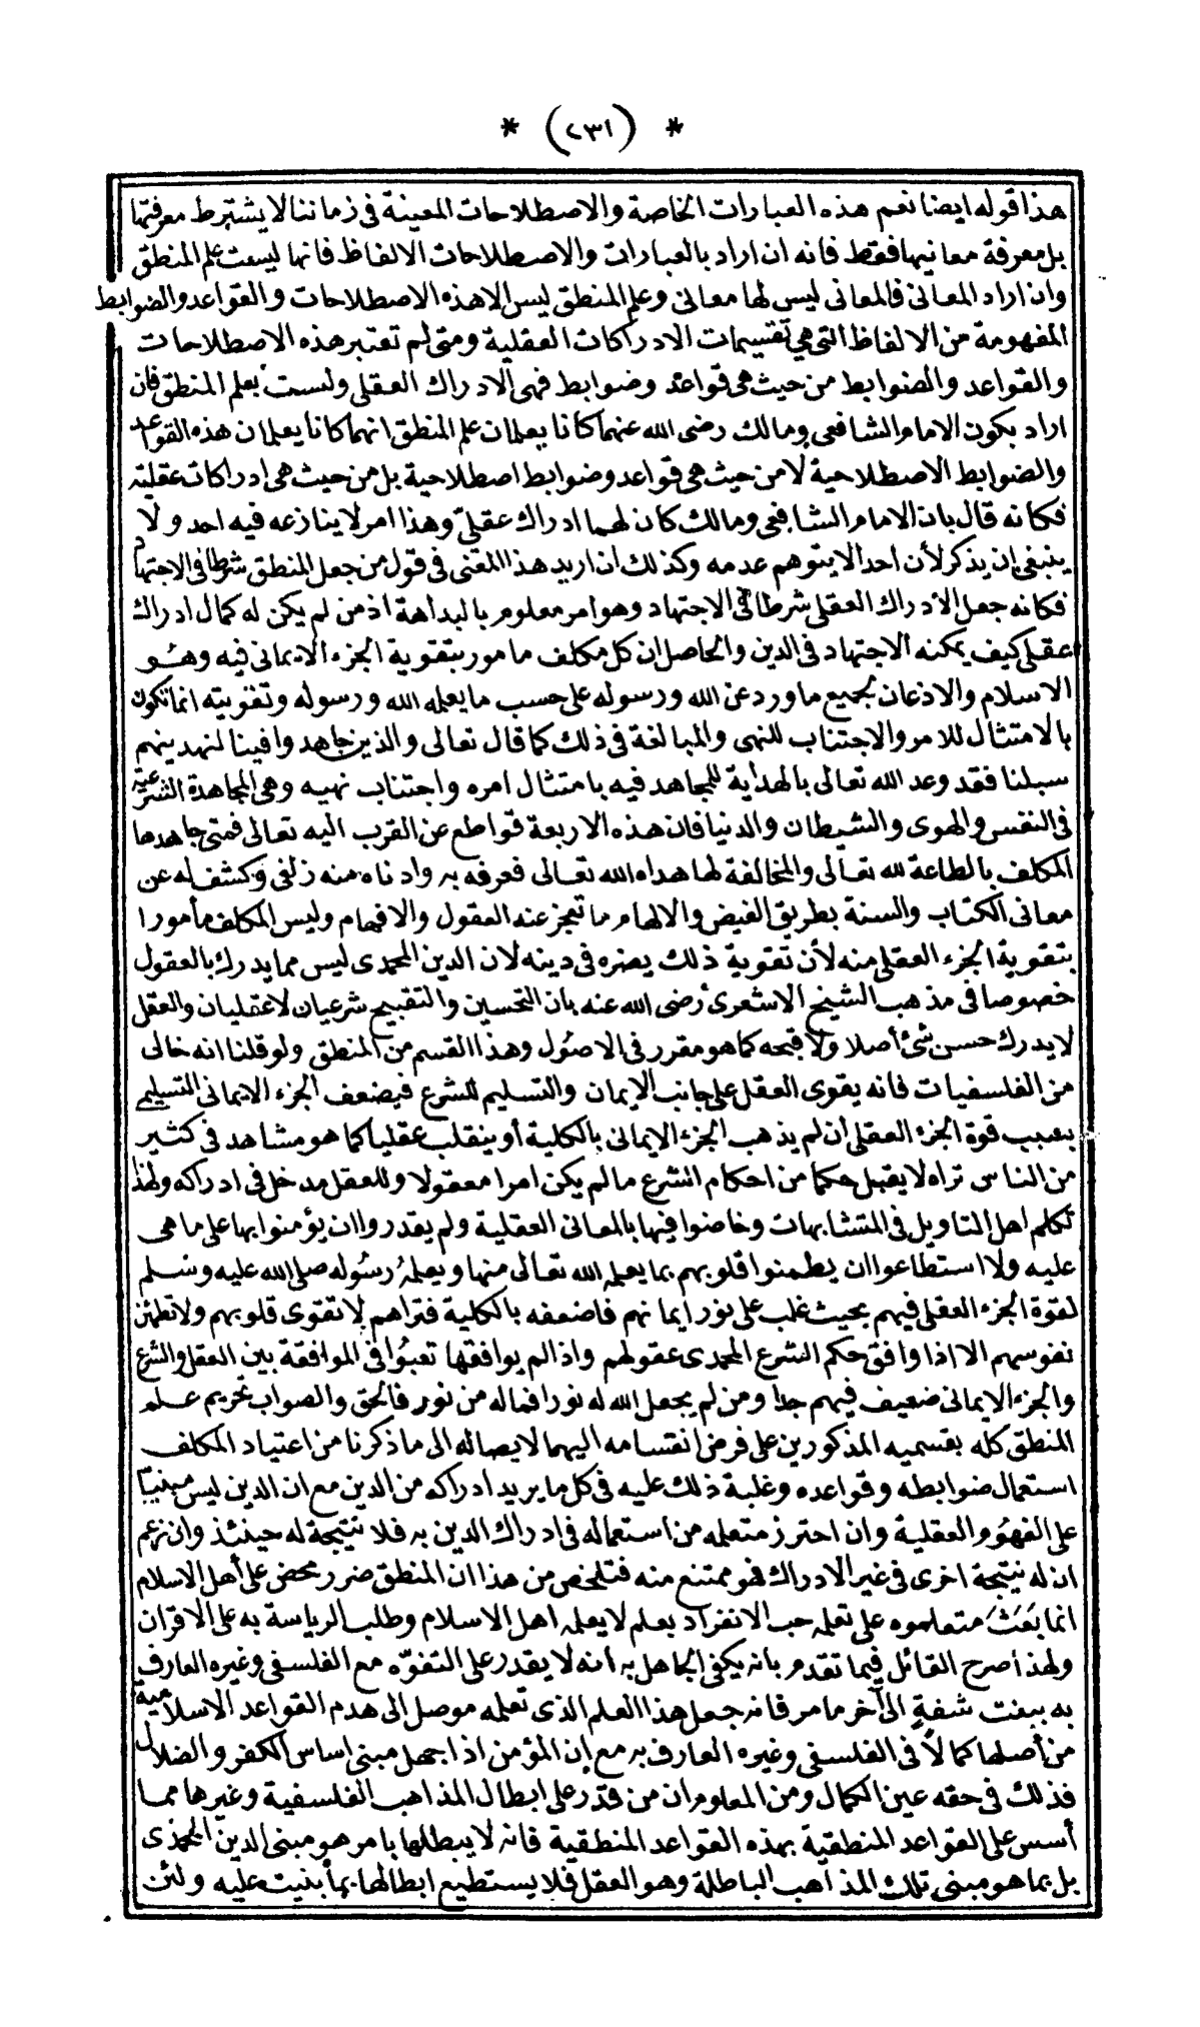 * (٢٣١) *
هذا قوله ايضا نعم هذه العبارات الخاصة والاصطلاحات المعينة فى زماننا لا يشترط معرفتها
بل معرفة معانيها فقط فانه ان اراد بالعبارات والاصطلاحات الالفاظ فانها ليست علم المنطق
وان اراد المعانى فالمعانى ليس لها معانى وعلم المنطق ليس الا هذه الاصطلاحات والقواعد والضوابط
المفهومة من الالفاظ التى هى تقسيمات الادراكات العقلية ومتى لم تعتبر هذه الاصطلاحات
والقواعد والضوابط من حيث هى قواعد وضوابط فهى الادراك العقلى وليست بعلم المنطق فان
اراد بكون الامام الشافعى ومالك رضى الله عنهما كانا يعلمان علم المنطق انهما كانا يعلمان هذه القواعد
والضوابط الاصطلاحية لا من حيث هى قواعد وضوابط اصطلاحية بل من حيث هى ادراكات عقلية
فكانه قال بان الامام الشافعى ومالك كان لهما ادراك عقلىّ وهذا امر لا ينازعه فيه احد ولا
ينبغى ان يذكر لأن احدا لا يتوهم عدمه وكذلك ان اريد هذا المعنى فى قول من جعل المنطق شرطا فى الاجتهاد
فكانه جعل الأدراك العقلى شرطا فى الاجتهاد وهو امر معلوم بالبداهة اذ من لم يكن له كمال ادراك
عقلى كيف يمكنه الاجتهاد فى الدين والحاصل ان كل مكلف مامور بتقوية الجزء الايمانى فيه وهو
الاسلام والاذعان بجميع ما ورد عن الله ورسوله على حسب ما يعلمه الله ورسوله وتقويته انما تكون
بالامتثال للامر والاجتناب للنهى والمبالغة فى ذلك كما قال تعالى والذين جاهدوا فينا لنهدينهم
سبلنا فقد وعد الله تعالى بالهداية للمجاهد فيه بامتثال امره واجتناب نهيه وهى المجاهدة الشرعية
فى النفس والهوى والشيطان والدنيا فان هذه الاربعة قواطع عن القرب اليه تعالى فمتى جاهدها
المكلف بالطاعة لله تعالى والمخالفة لها هداه الله تعالى فعرفه به وادناه منه زلفى وكشف له عن
معانى الكتاب والسنة بطريق الفيض والالهام ما تعجز عنه العقول والافهام وليس المكلف مأمورا
بتقوية الجزء العقلى منه لأن تقوية ذلك يضره فى دينه لان الدين المحمدى ليس مما يدرك بالعقول
خصوصا فى مذهب الشيخ الاشعرى رضى الله عنه بان التحسين والتقبيح شرعيان لا عقليان والعقل
لا يدرك حسن شئ أصلا ولا قبحه كما هو مقرر فى الاصول وهذا القسم من المنطق ولو قلنا انه خالى
من الفلسفيات فانه يقوى العقل على جانب الايمان والتسليم للشرع فيضعف الجزء الايمانى التسليمى
بسبب قوة الجزء العقلى أن لم يذهب الجزء الايمانى بالكلية أو ينقلب عقليا كما هو مشاهد فى كثير
من الناس تراه لا يقبل حكما من احكام الشرع ما لم يكن امرا معقولا وللعقل مدخل فى ادراكه ولهذا
تكلم اهل التاويل فى المتشابهات وخاضوا فيها بالمعانى العقلية ولم يقدروا ان يؤمنوا بها على ما هى
عليه ولا استطاعوا ان يطمنوا قلوبهم بما يعلمه الله تعالى منها ويعلمه رسوله صلى الله عليه وسلم
لقوة الجزء العقلى فيهم بحيث غلب على نور ايمانهم فاضعفه بالكلية فتراهم لا تقوى قلوبهم ولا تطمئن
نفوسهم الا اذا وافق حكم الشرع المحمدى عقولهم واذا لم يوافقها تعبوا فى الموافقة بين العقل والشرع
والجزء الايمانى ضعيف فيهم جدا ومن لم يجعل الله له نورا فماله من نور فالحق والصواب تحريم علم
المنطق كله بقسميه المذكورين على فرض انقسامه اليهما لايصاله الى ما ذكرنا من اعتياد المكلف
استعمال ضوابطه وقواعده وغلبة ذلك عليه فى كل ما يريد ادراكه من الدين مع ان الدين ليس مبنيا
على الفهوم العقلية وان احترز متعلمه من استعماله فى ادراك الدين به فلا نتيجة له حينئذ وان زعم
ان له نتيجة اخرى فى غير الادراك فهو ممتنع منه فتلخص من هذا ان المنطق ضرر محض على أهل الاسلام
انما بَعَثَ متعلموه على تعلمه حب الانفراد بعلم لا يعلمه اهل الاسلام وطلب الرياسة به على الاقران
ولهذا صرح القائل فيما تقدم بانه يكفى الجاهل به أنه لا يقدر على التفوّه مع الفلسفى وغيره العارف
به ببنت شفةٍ الى آخر ما مر فانه جعل هذا العلم الذى تعلمه موصل الى هدم القواعد الاسلامية
من أصلها كمالاً فى الفلسفى وغيره العارف به مع ان المؤمن اذا جهل مبنى اساس الكفر والضلال
فذلك فى حقه عين الكمال ومن المعلوم ان من قدر على ابطال المذاهب الفلسفية وغيرها مما
أسس على القواعد المنطقية بهذه القواعد المنطقية فانه لا يبطلها بامر هو مبنى الدين المحمدى
بل بما هو مبنى تلك المذاهب الباطلة وهو العقل فلا يستطيع ابطالها بما بنيت عليه ولئن